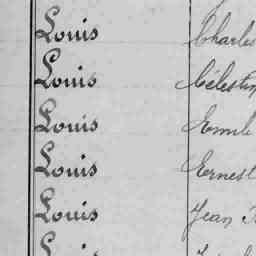 Louis Charles
Louis Célestin
Louis Emile
Louis Ernest
Louis Jean